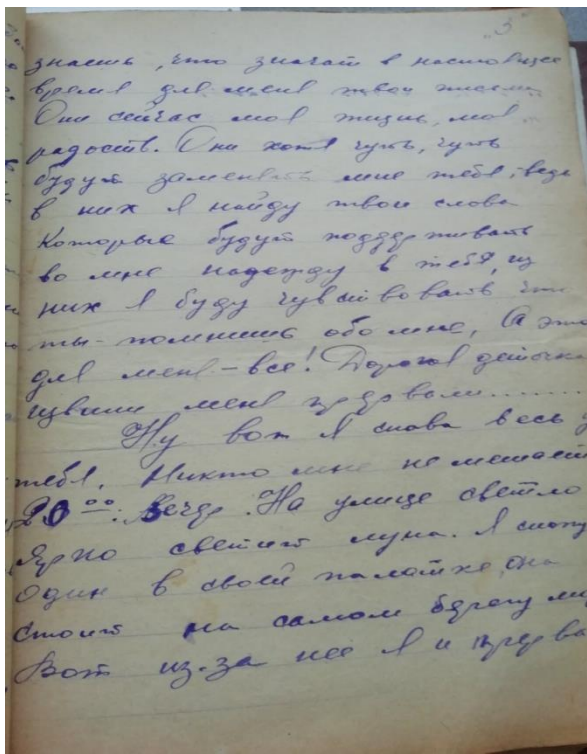 "3"
знаешь, что значат в настоящее
время для меня твои письма
Они сейчас моя жизнь, моя
радость. Они хотя чуть, чуть
будут заменять мне тебя, ведь
в них я найду твои слова
которые будут поддерживать
во мне надежду в тебя, из
них я буду чувствовать что
ты - помнишь обо мне, А это
для меня - все! Дорогая деточка
извини меня прервали........
Ну вот я снова весь у
тебя. Никто мне не мешает
20 00 вечер. На улице светло
Ярко светит луна. Я
один в своей палатке, она
стоит на самом берегу
Вот из-за нее я и прерва